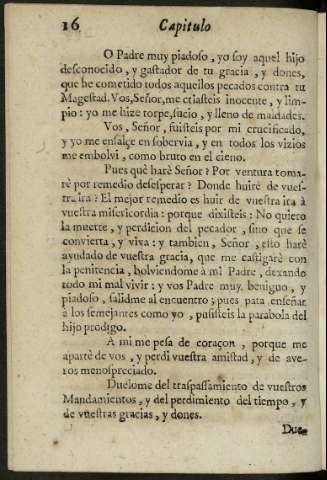 16 Capitulo
O Padre muy piadoso, yo soy aquel hijo
desconocido, y gastador de tu gracia, y dones,
que he cometido todos aquellos pecados contra tu
Magestad. Vos, Señor, me criasteis inocente, y lim-
pio: yo me hize torpe, sucio, y lleno de maldades.
Vos, Señor, fuisteis por mi crucificado,
y yo me ensalçe en sobervia, y en todos los vizios
me embolvi, como bruto en el cieno.
Pues què harè Señor? Por ventura toma-
rè por remedio desesperar? Donde huirè de vues-
tra ira? El mejor remedio es huir de vuestra ira à
vuestra misericordia: porque dixisteis: No quiero
la muerte, y perdicion del pecador, sino que se
convierta, y viva: y tambien, Señor, esto harè
ayudado de vuestra gracia, que me castigarè con
la penitencia, bolviendome à mi Padre, dexando
todo mi mal vivir: y vos Padre muy benigno, y
piadoso, salidme al encuentro; pues para enseñar
à los semejantes como yo, pusisteis la parabola del
hijo prodigo.
A mi me pesa de coraçon, porque me
apartè de vos, y perdi vuestra amistad, y de ave-
ros menospreciado.
Duelome del traspassamiento de vuestros
Mandamientos, y del perdimiento del tiempo, y
de vuestras gracias, y dones.
Due-